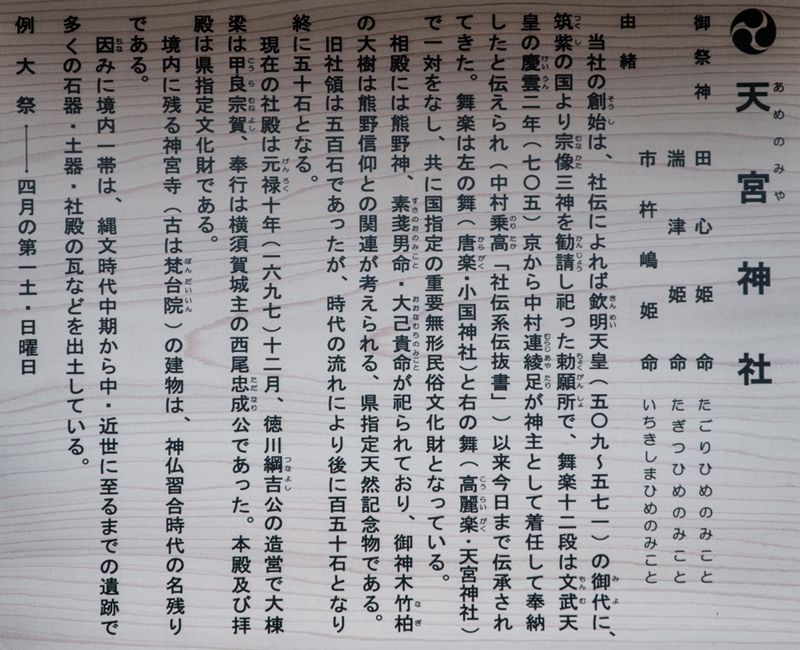 天宮神社
あめのみや
御祭神　田心姫命　たごりひめのみこと
湍津姫命　たぎつひめのみこと
市杵嶋姫命　いちきしまひめのみこと
由緒
当社の創始は、社伝によれば欽明天皇（五〇九～五七一）の御代に、
筑紫の国より宗像三神を勧請し祀った勅願所で、舞楽十二段は文武天
皇の慶雲二年（七〇五）京から中村連綾足が神主として着任して奉納
したと伝えられ（中村乗高「社伝系伝抜書」）以来今日まで伝承され
てきた。舞楽は左の舞（唐楽・小国神社）と右の舞（高麗楽・天宮神社）
で一対をなし、共に国指定の重要無形民俗文化財となっている。
相殿には熊野神、素戔男命・大己貴命が祀られており、御神木竹柏
の大樹は熊野信仰との関連が考えられる、県指定天然記念物である。
旧社領は五百石であったが、時代の流れにより後に百五十石となり
終に五十石となる。
現在の社殿は元禄十年（一六九七）十二月、徳川綱吉公の造営で大棟
梁は甲良宗賀、奉行は横須賀城主の西尾忠成公であった。本殿及び拝
殿は県指定文化財である。
境内に残る神宮寺（古は梵台院）の建物は、神仏習合時代の名残り
である。
因みに境内一帯は、縄文時代中期から中・近世に至るまでの遺跡で
多くの石器・土器・社殿の瓦などを出土している。
例大祭――四月の第一土・日曜日